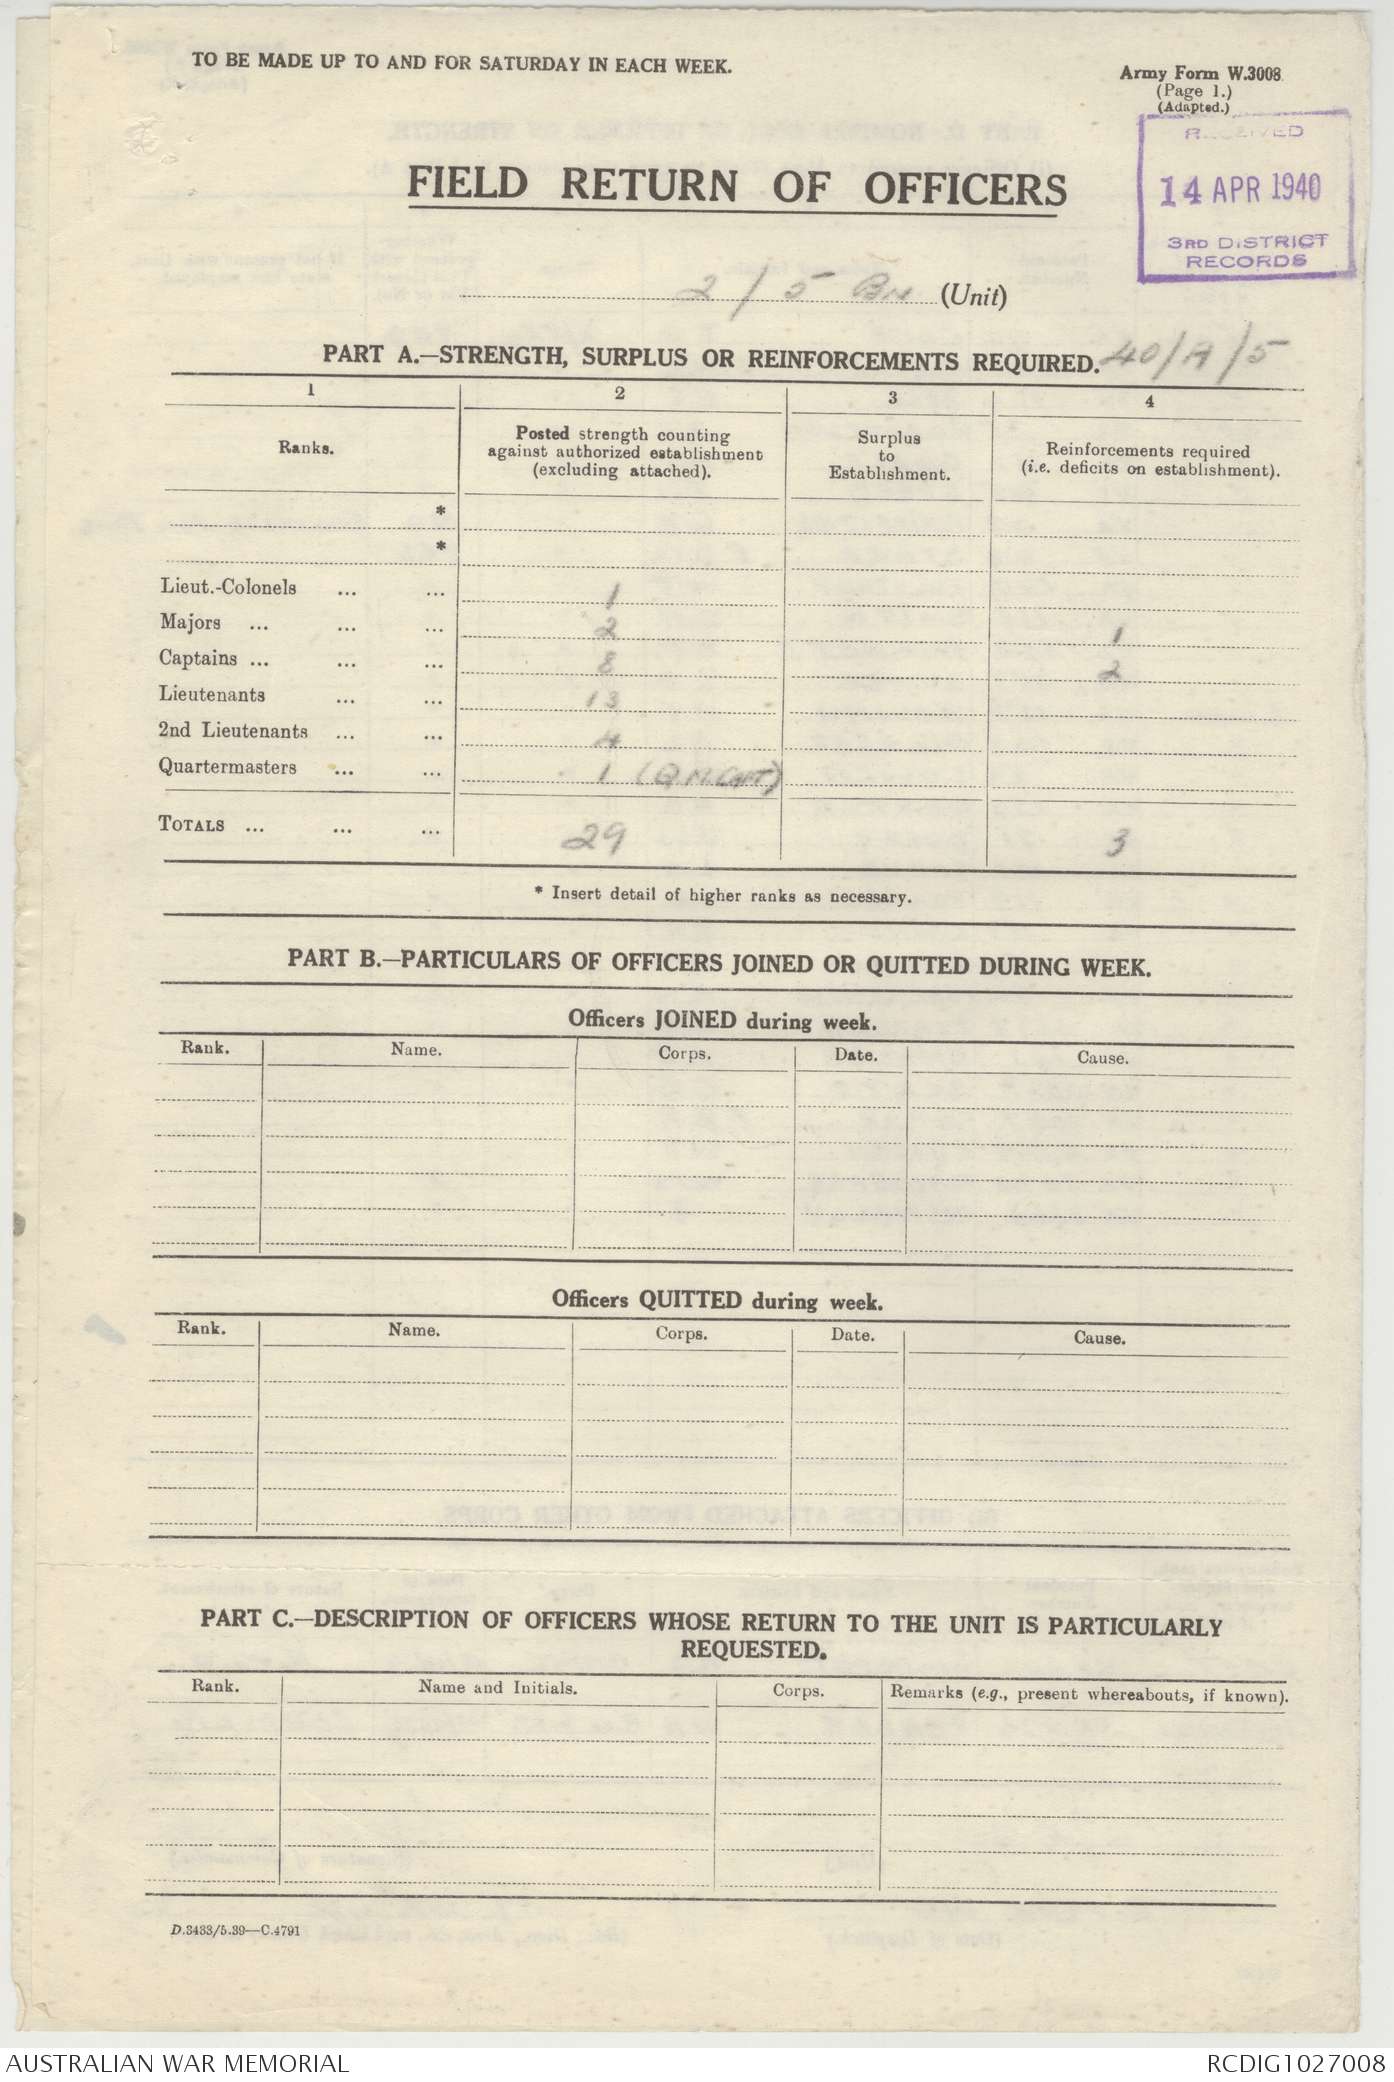 TO BE MADE UP TO AND FOR SATURDAY IN EACH WEEK.
Army Form W.3008.
(Page 1.)
(Adapted.)
RECEIVED
14 APR 1940
3RD DISTRICT
RECORDS
FIELD RETURN OF OFFICERS
2/5 Bn (Unit)
PART A.—STRENGTH, SURPLUS OR REINFORCEMENTS REQUIRED. 40/A/5
1 2 3 4
Ranks.
Posted strength counting
against authorized establishment
(excluding attached).
Surplus
to
Establishment.
Reinforcements required
(i.e. deficits on establishment).
*
*
Lieut.-Colonels ... ... 1
Majors ... ... ... 2 1
Captains ... ... ... 8 2
Lieutenants ... ... 13
2nd Lieutenants ... ... 4
Quartermasters ... ... 1 (Q.M. Capt)
TOTALS ... ... ... 29 3
* Insert detail of higher ranks as necessary.
PART B.—PARTICULARS OF OFFICERS JOINED OR QUITTED DURING WEEK.
Officers JOINED during week.
Rank. Name. Corps. Date. Cause.
Officers QUITTED during week.
Rank. Name. Corps. Date. Cause.
PART C.—DESCRIPTION OF OFFICERS WHOSE RETURN TO THE UNIT IS PARTICULARLY
REQUESTED.
Rank. Name and Initials. Corps. Remarks (e.g., present whereabouts, if known).
D.3433/5.39—C.4791
AUSTRALIAN WAR MEMORIAL
RCDIG1027008